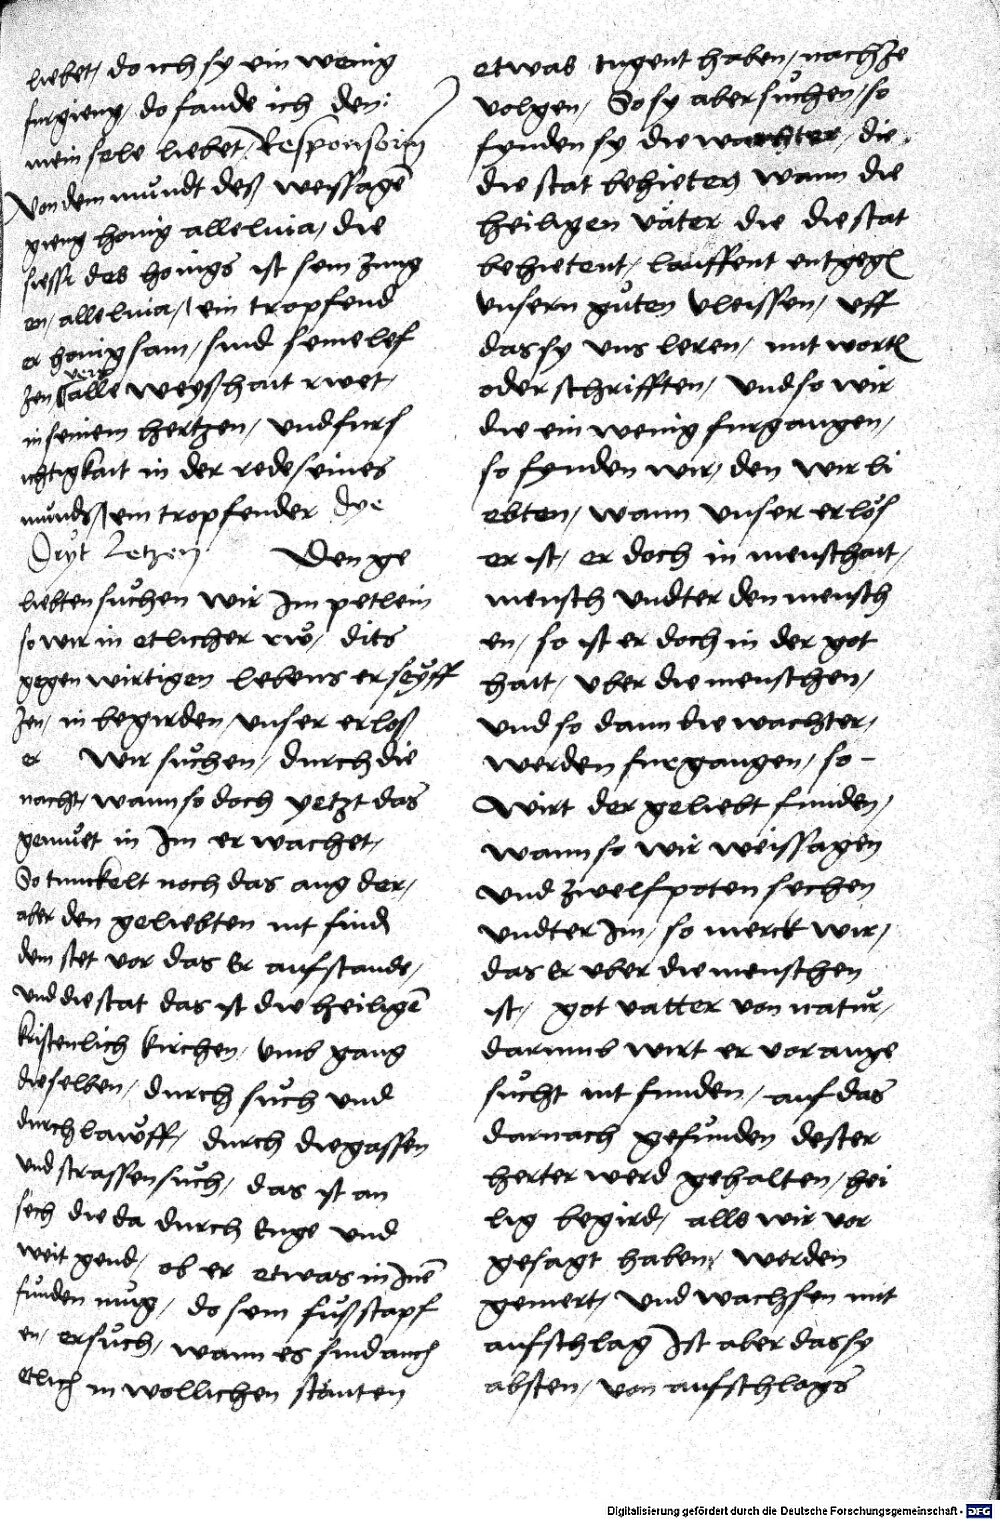 liebet, do ich sy ein wenig
furgieng, do fande ich den:
mein sele liebet, Responsoriu
Von dem mundt deß weissage
gieng honig alleluia, die
siessi des honigs ist sein zung
en, alleluia, ein tropfend
er honigsam, sind seine lef
vers
zen, alle weyßhait rwet,
in seinem hertzen, und furs
ichtigkait in der rede seines
munds, ein tropfender Dye
Dryt Letzen Den ge
liebten suchen wir Im petlein
so wir in etlicher rw, dits
gegenwirtigen lebens erseyff
zen, in begirden, unser erloß
er Wir suchen, durch die
nacht, wann so doch yetzt das
gemuet in Im erwachet,
So tunckelt noch das aug der,
aber den geliebten nit find
dem stet vor das Er aufstande,
und die stat das ist die heilige
kristenlich kirchen, umb gang
dieselben, durch such und
durchlauff, durch die gassen
und strassen such, das ist an
sech die da durch Enge und
weit gend, ob er etwas in Ine
funden mug, do sein fußstapf
en, ersuch, wann es sind auch
etlich in wollichen stenten
etwas tugent haben, nach ze
volgen, So sy aber suchen, so
fynden sy die wachter, die
die stat behieten, Wann die
heiligen väter die die stat
behietent, lauffent entgegen
unsern guten vleissen, uff
das sy uns leren, mit worten
oder schrifften, und so wir
die ein wenig furgangen,
so fynden wir, den wir li
ebten, wann unser erlös
er ist, er doch in menschait,
mensch undter den mensch
en, so ist er doch in der got
hait, uber die menschen,
und so dann die wachter,
werden furgangen, so -
wirt der geliebt funden,
wann so wir weissagen
und zwelfpoten sechen
undter Im, so merck wir,
das Er uber die menschen
ist, got vatter von natur,
darumb wirt er vor ange
sucht nit funden, auf das
darnach gefunden dester
herter werd gehalten, hei
lig begird, alls wir vor
gesagt haben, werden
gemert, und wachsen mit
aufschlag Ist aber das sy
absten, von aufschlags
Digitalisierung gefördert durch die Deutsche Forschungsgemeinschaft - DFG